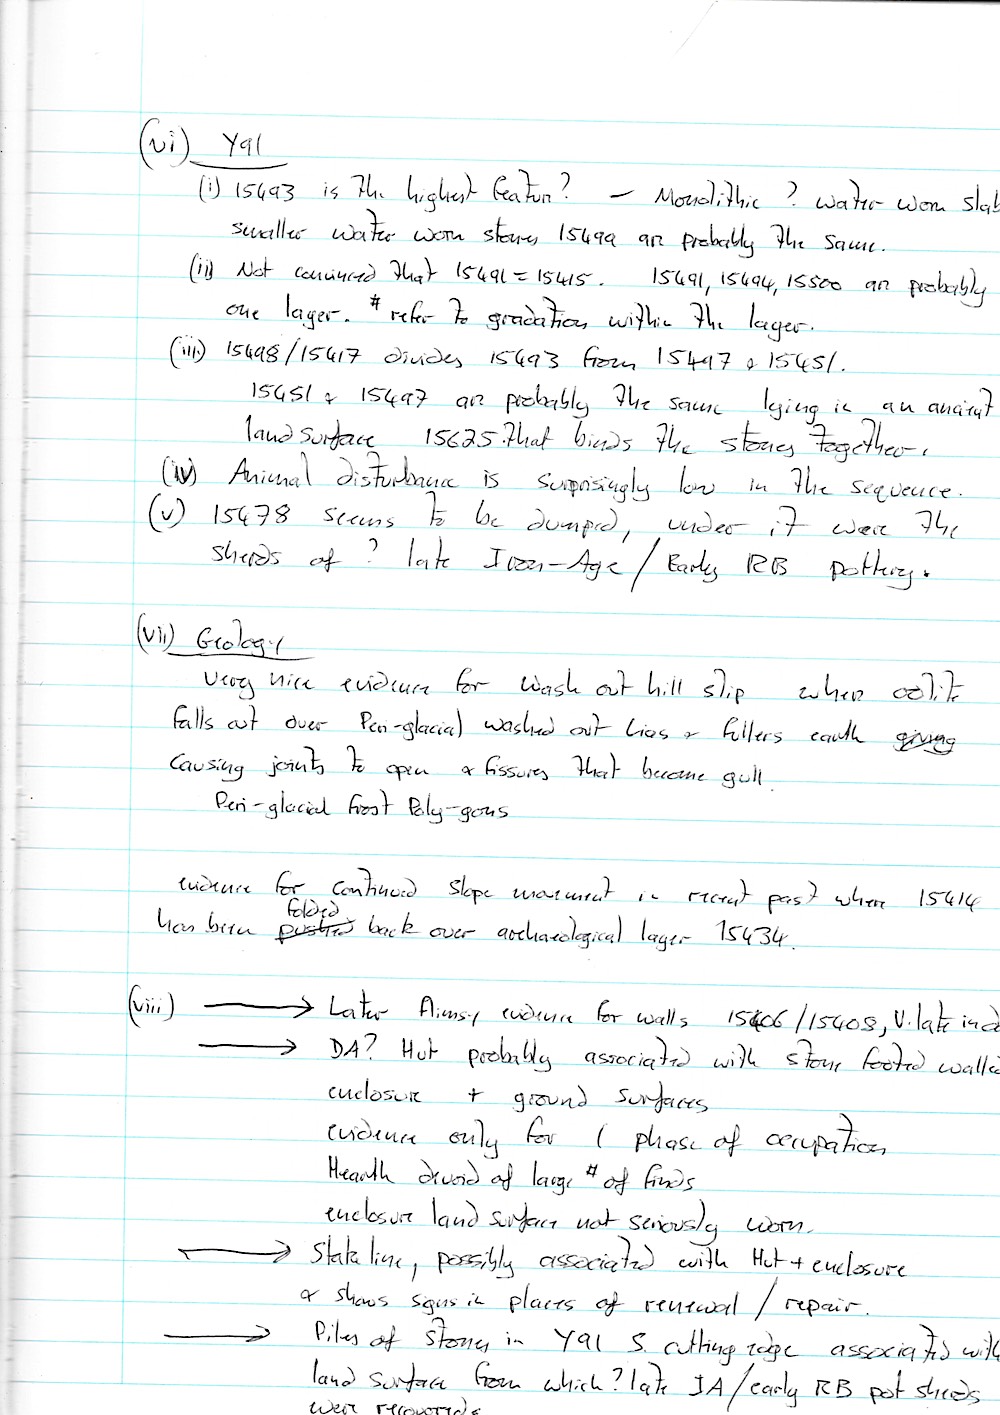 (vi) Y91
(i) 15493 is the highest feature? – Monolithic ? water worn slab
smaller water worn stones 15499 are probably the same.
(ii) Not convinced that 15491 = 15415. 15491, 15494, 15500 are probably
one layer. # refer to gradation within the layer.
(iii) 15498/15417 divides 15493 from 15497 & 15451.
15451 & 15497 are probably the same lying in an ancient
land surface 15625 that binds the stones together.
(iv) Animal disturbance is surprisingly low in the sequence.
(v) 15478 seems to be dumped, under it were the
sherds of ? late Iron-Age / Early RB pottery.
(vii) Geology
Very nice evidence for wash out hill slip when oolite
falls out over Peri-glacial washed out lias & fullers earth giving
causing joints to open & fissures that become gull.
Peri-glacial frost Poly-gons
evidence for continued slope movement in recent past where 15414
has been pushed folded back over archaeological layer 15434.
(viii) → Later flimsy evidence for walls 15406/15408, V. late in d
→ DA? Hut probably associated with stone footed walled
enclosure + ground surfaces
evidence only for 1 phase of occupation
Hearth devoid of large # of finds
enclosure land surface not seriously worn.
→ Stake line, possibly associated with Hut + enclosure
& shows signs in places of renewal / repair.
→ Piles of stones in Y91 S. cutting edge associated with
land surface from which ? late IA/early RB pot sherds
were recovered